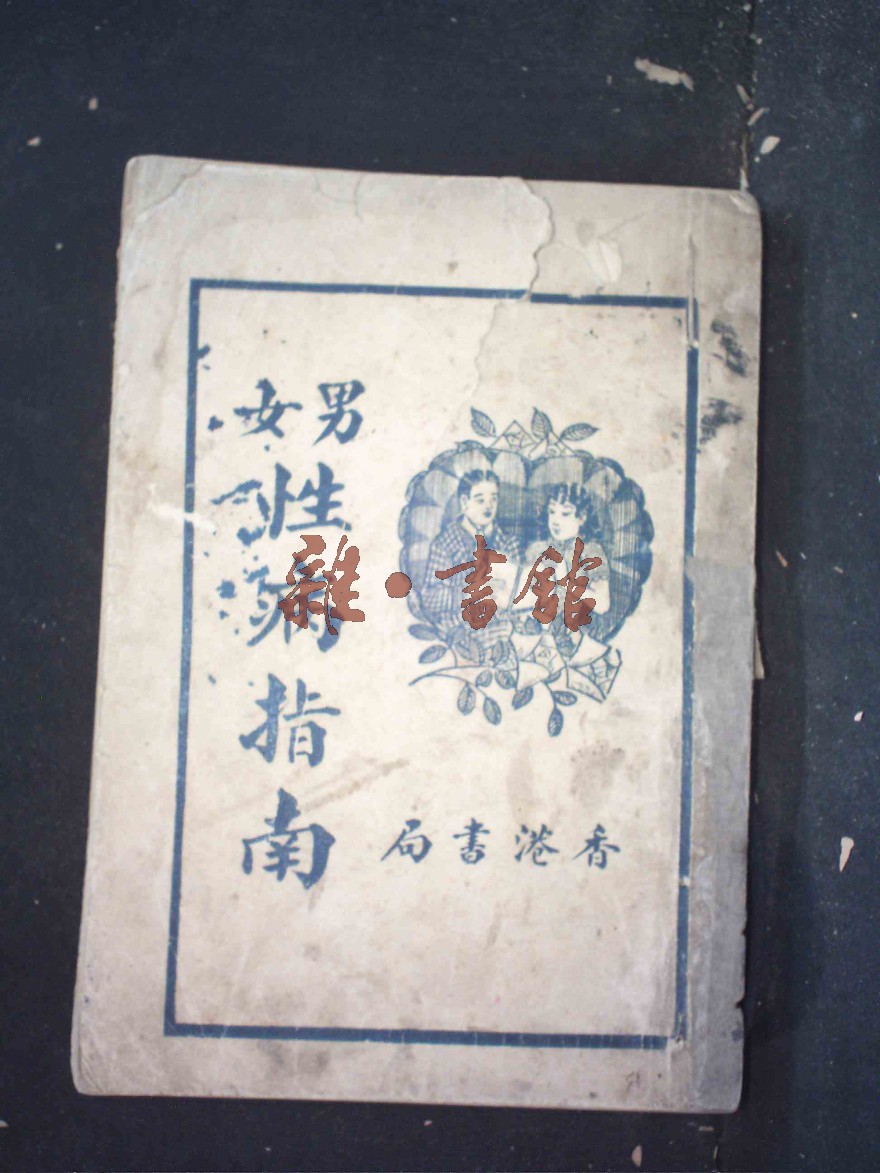 男女
性病指南
香港書局
雜·書館